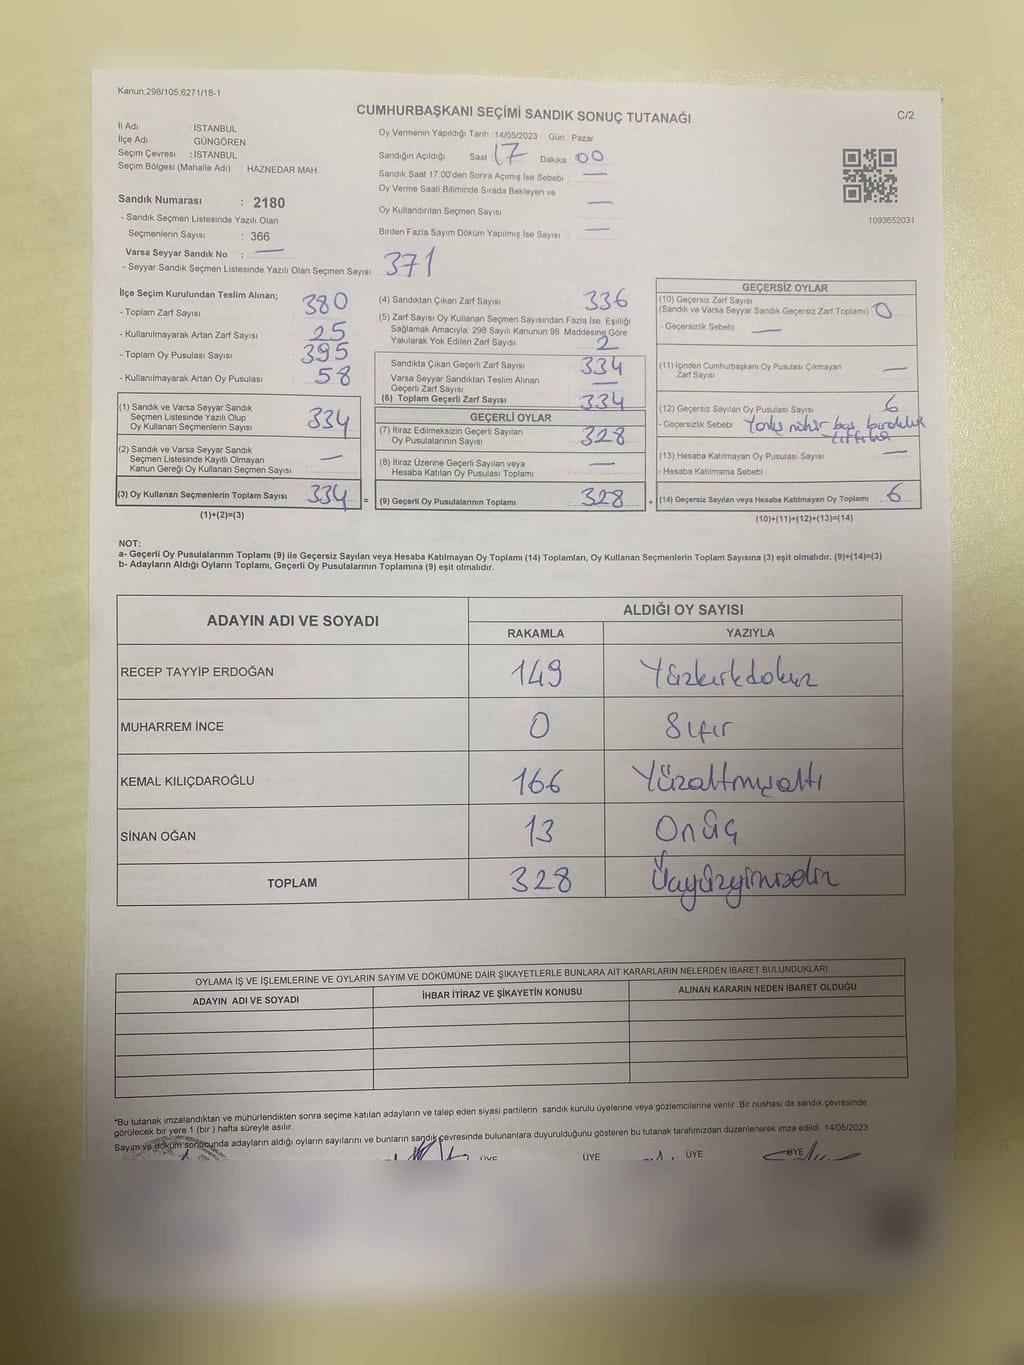 Kanun;298/105,6271/18-1
CUMHURBAŞKANI SEÇİMİ SANDIK SONUÇ TUTANAĞI
C/2
İl Adı : İSTANBUL
İlçe Adı : GÜNGÖREN
Seçim Çevresi : İSTANBUL
Seçim Bölgesi (Mahalle Adı) HAZNEDAR MAH.
Sandık Numarası : 2180
- Sandık Seçmen Listesinde Yazılı Olan
Seçmenlerin Sayısı : 366
Varsa Seyyar Sandık No : —
- Seyyar Sandık Seçmen Listesinde Yazılı Olan Seçmen Sayısı: 371
Oy Vermenin Yapıldığı Tarih :14/05/2023 Gün : Pazar
Sandığın Açıldığı Saat 17 Dakika : 00
Sandık Saat 17:00'den Sonra Açımış İse Sebebi : —
Oy Verme Saati Bitiminde Sırada Bekleyen ve
Oy Kullandırılan Seçmen Sayısı —
Birden Fazla Sayım Döküm Yapılmış İse Sayısı : —
1093652031
İlçe Seçim Kurulundan Teslim Alınan;
- Toplam Zarf Sayısı : 380
- Kullanılmayarak Artan Zarf Sayısı : 25
- Toplam Oy Pusulası Sayısı : 395
- Kullanılmayarak Artan Oy Pusulası : 58
(1) Sandık ve Varsa Seyyar Sandık
Seçmen Listesinde Yazılı Olup
Oy Kullanan Seçmenlerin Sayısı : 334
(2) Sandık ve Varsa Seyyar Sandık
Seçmen Listesinde Kayıtlı Olmayan
Kanun Gereği Oy Kullanan Seçmen Sayısı : —
(3) Oy Kullanan Seçmenlerin Toplam Sayısı : 334 =
(1)+(2)=(3)
(4) Sandıktan Çıkan Zarf Sayısı : 336
(5) Zarf Sayısı Oy Kullanan Seçmen Sayısından Fazla İse, Eşitliği
Sağlamak Amacıyla; 298 Sayılı Kanunun 98. Maddesine Göre
Yakılarak Yok Edilen Zarf Sayısı : 2
Sandıkta Çıkan Geçerli Zarf Sayısı : 334
Varsa Seyyar Sandıktan Teslim Alınan
Geçerli Zarf Sayısı : —
(6) Toplam Geçerli Zarf Sayısı : 334
GEÇERLİ OYLAR
(7) İtiraz Edilmeksizin Geçerli Sayılan
Oy Pusulalarının Sayısı : 328
(8) İtiraz Üzerine Geçerli Sayılan veya
Hesaba Katılan Oy Pusulası Toplamı : —
(9) Geçerli Oy Pusulalarının Toplamı : 328 +
GEÇERSİZ OYLAR
(10) Geçersiz Zarf Sayısı
(Sandık ve Varsa Seyyar Sandık Geçersiz Zarf Toplamı) : 0
- Geçersizlik Sebebi : —
(11) İçinden Cumhurbaşkanı Oy Pusulası Çıkmayan
Zarf Sayısı : —
(12) Geçersiz Sayılan Oy Pusulası Sayısı : 6
- Geçersizlik Sebebi : mühür boş
(13) Hesaba Katılmayan Oy Pusulası Sayısı : —
- Hesaba Katılmama Sebebi :
(14) Geçersiz Sayılan veya Hesaba Katılmayan Oy Toplamı : 6
(10)+(11)+(12)+(13)=(14)
NOT:
a- Geçerli Oy Pusulalarının Toplamı (9) ile Geçersiz Sayılan veya Hesaba Katılmayan Oy Toplamı (14) Toplamları, Oy Kullanan Seçmenlerin Toplam Sayısına (3) eşit olmalıdır. (9)+(14)=(3)
b- Adayların Aldığı Oyların Toplamı, Geçerli Oy Pusulalarının Toplamına (9) eşit olmalıdır.
ADAYIN ADI VE SOYADI
ALDIĞI OY SAYISI
RAKAMLA YAZIYLA
RECEP TAYYİP ERDOĞAN 149 Yüzkırkdokuz
MUHARREM İNCE 0 Sıfır
KEMAL KILIÇDAROĞLU 166 Yüzaltmışaltı
SİNAN OĞAN 13 Onüç
TOPLAM 328 Üçyüzyirmisekiz
OYLAMA İŞ VE İŞLEMLERİNE VE OYLARIN SAYIM VE DÖKÜMÜNE DAİR ŞİKAYETLERLE BUNLARA AİT KARARLARIN NELERDEN İBARET BULUNDUKLARI
ADAYIN ADI VE SOYADI İHBAR İTİRAZ VE ŞİKAYETİN KONUSU ALINAN KARARIN NEDEN İBARET OLDUĞU
*Bu tutanak imzalandıktan ve mühürlendikten sonra seçime katılan adayların ve talep eden siyasi partilerin sandık kurulu üyelerine veya gözlemcilerine verilir. Bir nüshası da sandık çevresinde
görülecek bir yere 1 (bir) hafta süreyle asılır.
Sayım ve döküm sonucunda adayların aldığı oyların sayılarını ve bunların sandık çevresinde bulunanlara duyurulduğunu gösteren bu tutanak tarafımızdan düzenlenerek imza edildi. 14/05/2023
ÜYE ÜYE ÜYE ÜYE